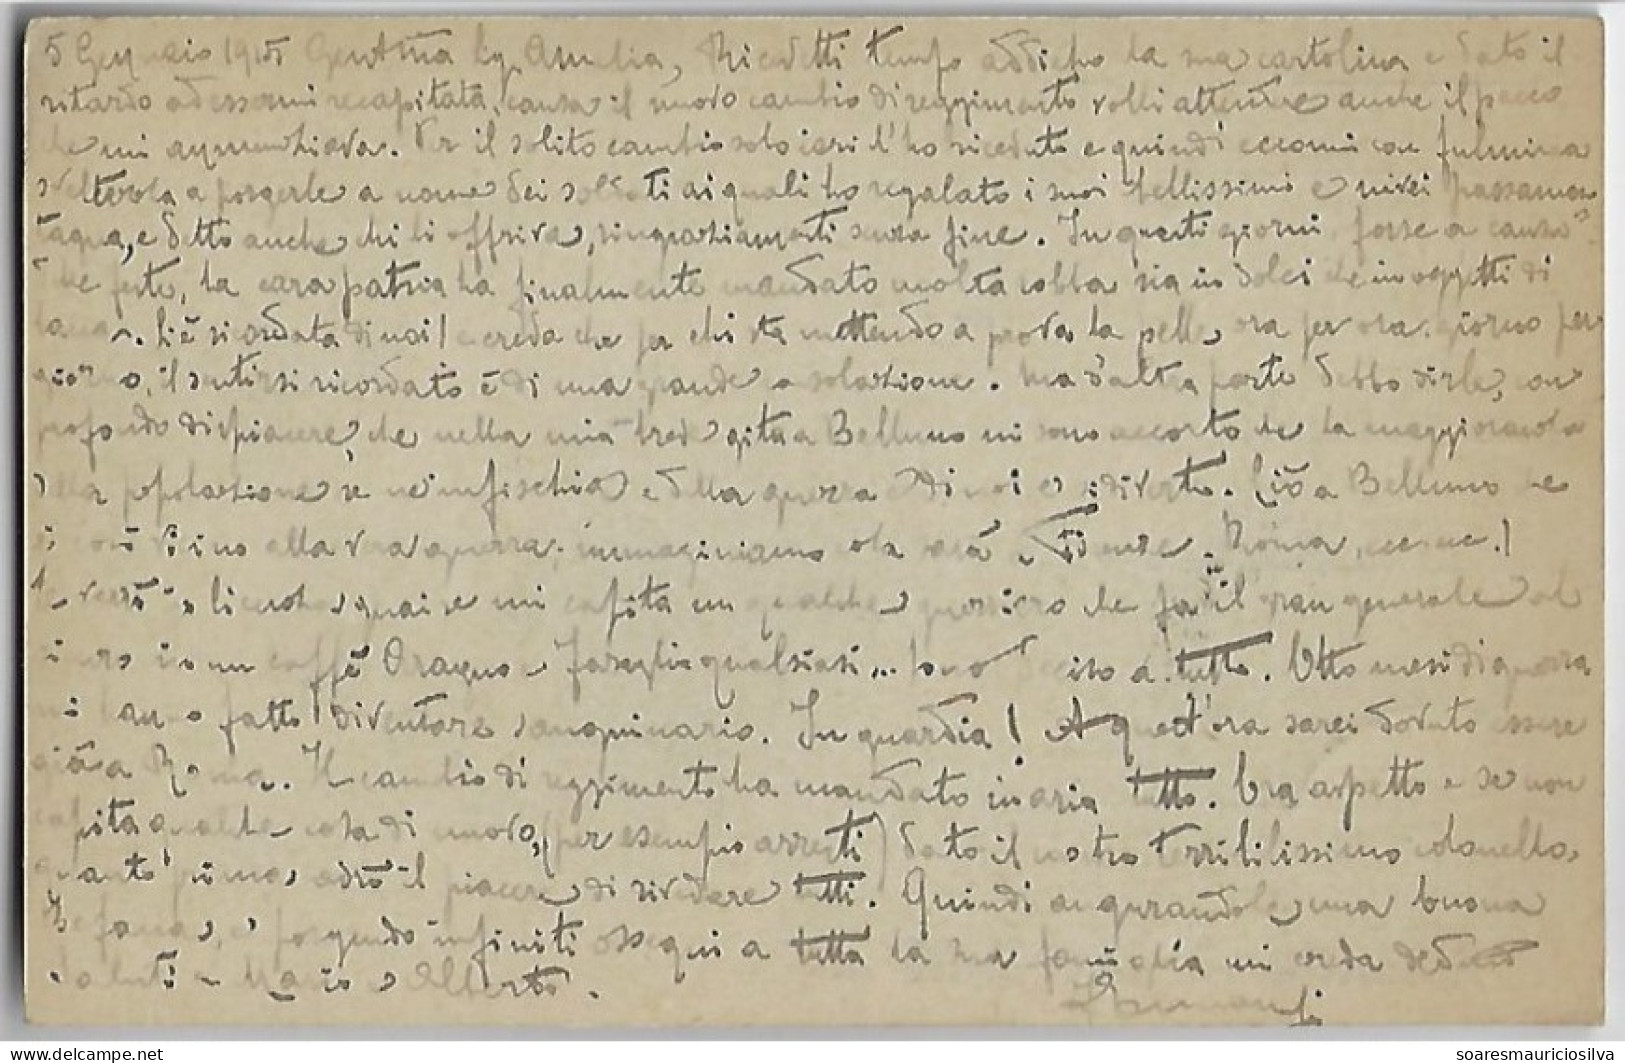 5 Gennaio 1915 Gentma Sig. Amelia, Ricevetti tempo addietro la sua cartolina e dato il
ritardo ad essermi recapitata, causa il nuovo cambio di reggimento volli attendere anche il pacco
che mi annunziava. Per il solito cambio solo ieri l'ho ricevuto e quindi eccomi con fulminea
sveltezza a porgerle a nome dei soldati ai quali ho regalato i suoi bellissimi e nivei passamon
tagna, e detto anche chi li offriva, ringraziamenti senza fine. In questi giorni, forse a causa
feste, la cara patria ha finalmente mandato molta robba sia in dolci che in oggetti di
lana. Si è ricordata di noi! e creda che per chi sta mettendo a prova la pelle, ora per ora, giorno per
giorno, il sentirsi ricordato è di una grande consolazione. Ma d'altra parte debbo dirle, con
profondo dispiacere, che nella mia gita a Belluno mi sono accorto che la maggioranza
della popolazione se ne infischia e della guerra e di noi e si diverte. Ciò a Belluno che
è così vicino alla vera guerra; immaginiamo cosa sarà a Firenze, Roma, ecc ecc.!
licenza, guai se mi capita un qualche guerriero che fa "il gran generale al
caffè Aragno o Faraglia qualsiasi... Sono deciso a tutto. Otto mesi di guerra
mi hanno fatto diventare sanguinario. In guardia! A quest'ora sarei dovuto essere
già a Roma. Il cambio di reggimento ha mandato in aria tutto. Ora aspetto e se non
capita qualche cosa di nuovo, (per esempio arresti) dato il nostro terribilissimo colonello,
quanto prima, avrò il piacere di rivedere tutti. Quindi augurandole una buona
Befana, e porgendo infiniti ossequi a tutta la sua famiglia mi creda
Saluti a Mario e Alberto.
soaresmauriciosilva